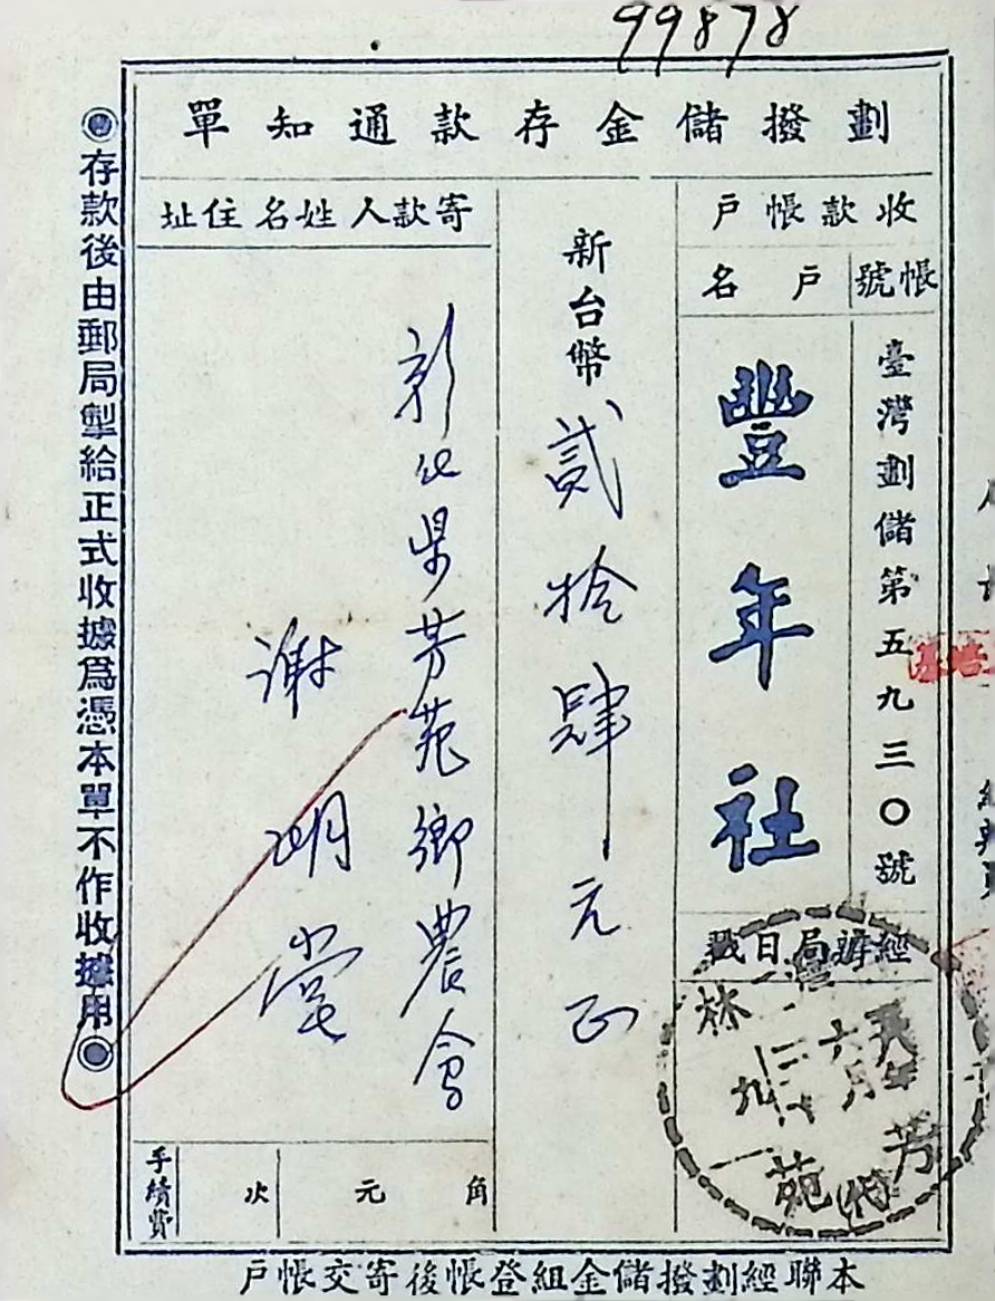 99878
劃撥儲金存款通知單
收款帳戶
帳號
戶名
臺灣劃儲第五九三〇號
豐年社
經辦局日戳
芳苑
新台幣貳拾肆元正
寄款人姓名住址
彰化県芳苑鄉農會
謝明堂
手續費
次
元
角
◎存款後由郵局掣給正式收據爲憑本單不作收據用◎
本聯經劃撥儲金組登帳後寄交帳戶